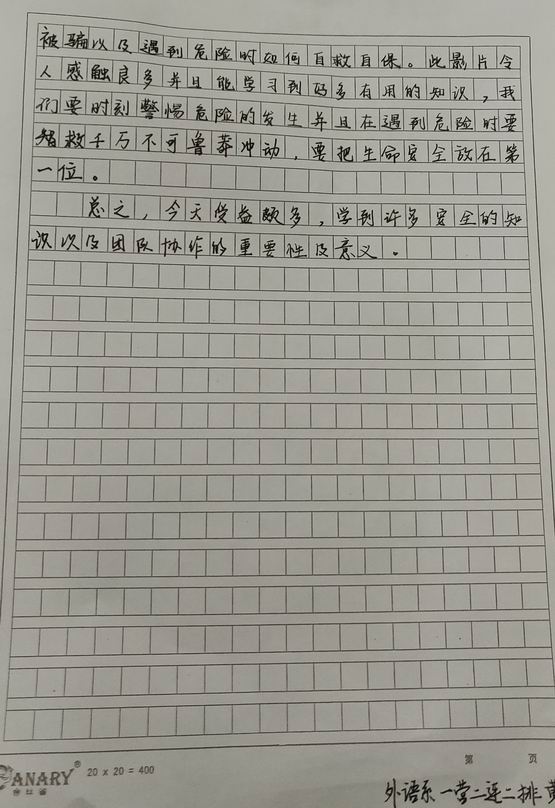 被骗以及遇到危险时如何自救自保。此影片令
人感触良多并且能学习到好多有用的知识，我
们要时刻警惕危险的发生并且在遇到危险时要
智救千万不可鲁莽冲动，要把生命安全放在第
一位。
总之，今天受益颇多，学到许多安全的知
识以及团队协作的重要性及意义。
第 页
ANARY® 20 x 20 = 400
外语系一营二连二排